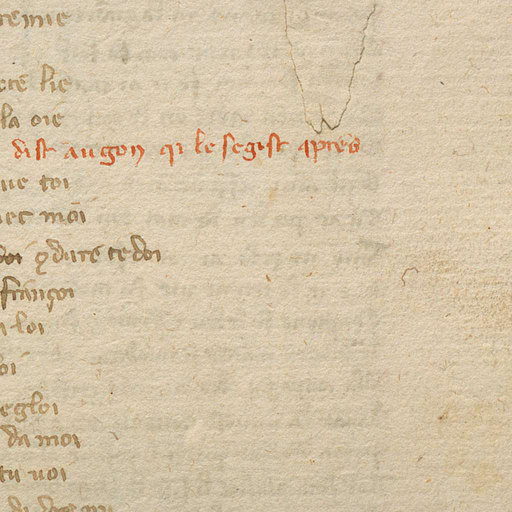 remie
ote lie
la oie
dist augon qi le segist apres
ue toi
uec moi
doi qdare te doi
françoi
a loi
oi
egloi
da moi
tu uoi